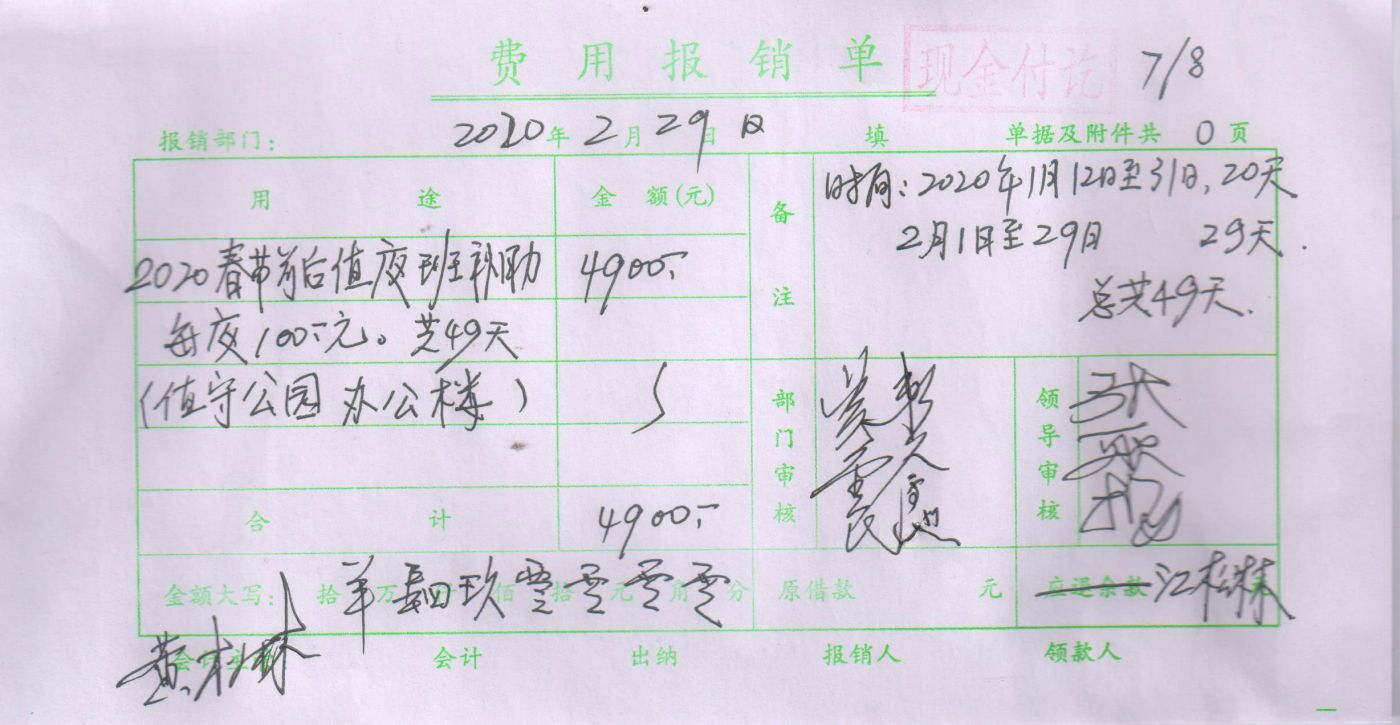 费用报销单 现金付讫 7/8
报销部门： 2020年2月29日 填 单据及附件共 0 页
用途 金额(元) 备注
时间：2020年1月12日至31日，20天
2月1日至29日 29天.
总共49天.
2020春节前后值夜班补助 4900.-
每夜100.-元。共49天
(值守公园办公楼)
部门审核 领导审核
合计 4900.-
金额大写： 拾 万 肆 玖 佰 零 拾 零 元 零 角 零 分 原借款 元 应退余款 江松林
会计 出纳 报销人 领款人